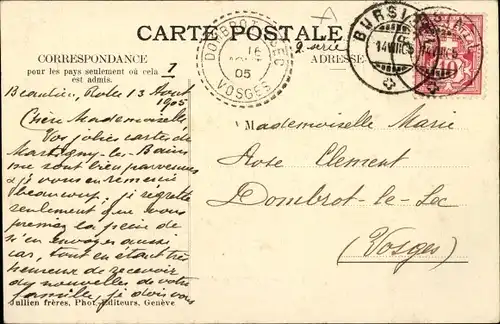 CARTE POSTALE
CORRESPONDANCE
pour les pays seulement où cela
est admis.
1
2 série
ADRESSE
DOMBROT-LE-SEC
16
05
VOSGES
BURSI
14 VIII 05
10
Beaulieu, Rolle 13 Août
1905
Chère Mademoiselle
Vos jolies cartes de
Martigny-les-Bains
me sont bien parvenues
& je vous en remercie
beaucoup, je regrette
seulement que vous
preniez la peine de
m'en envoyer aussi
car, tout en étant très
heureux de recevoir
des nouvelles de votre
famille, je dois vous
Jullien frères, Phot.-Editeurs, Genève
Mademoiselle Marie
Rose Clement
Dombrot-le-Sec
(Vosges)